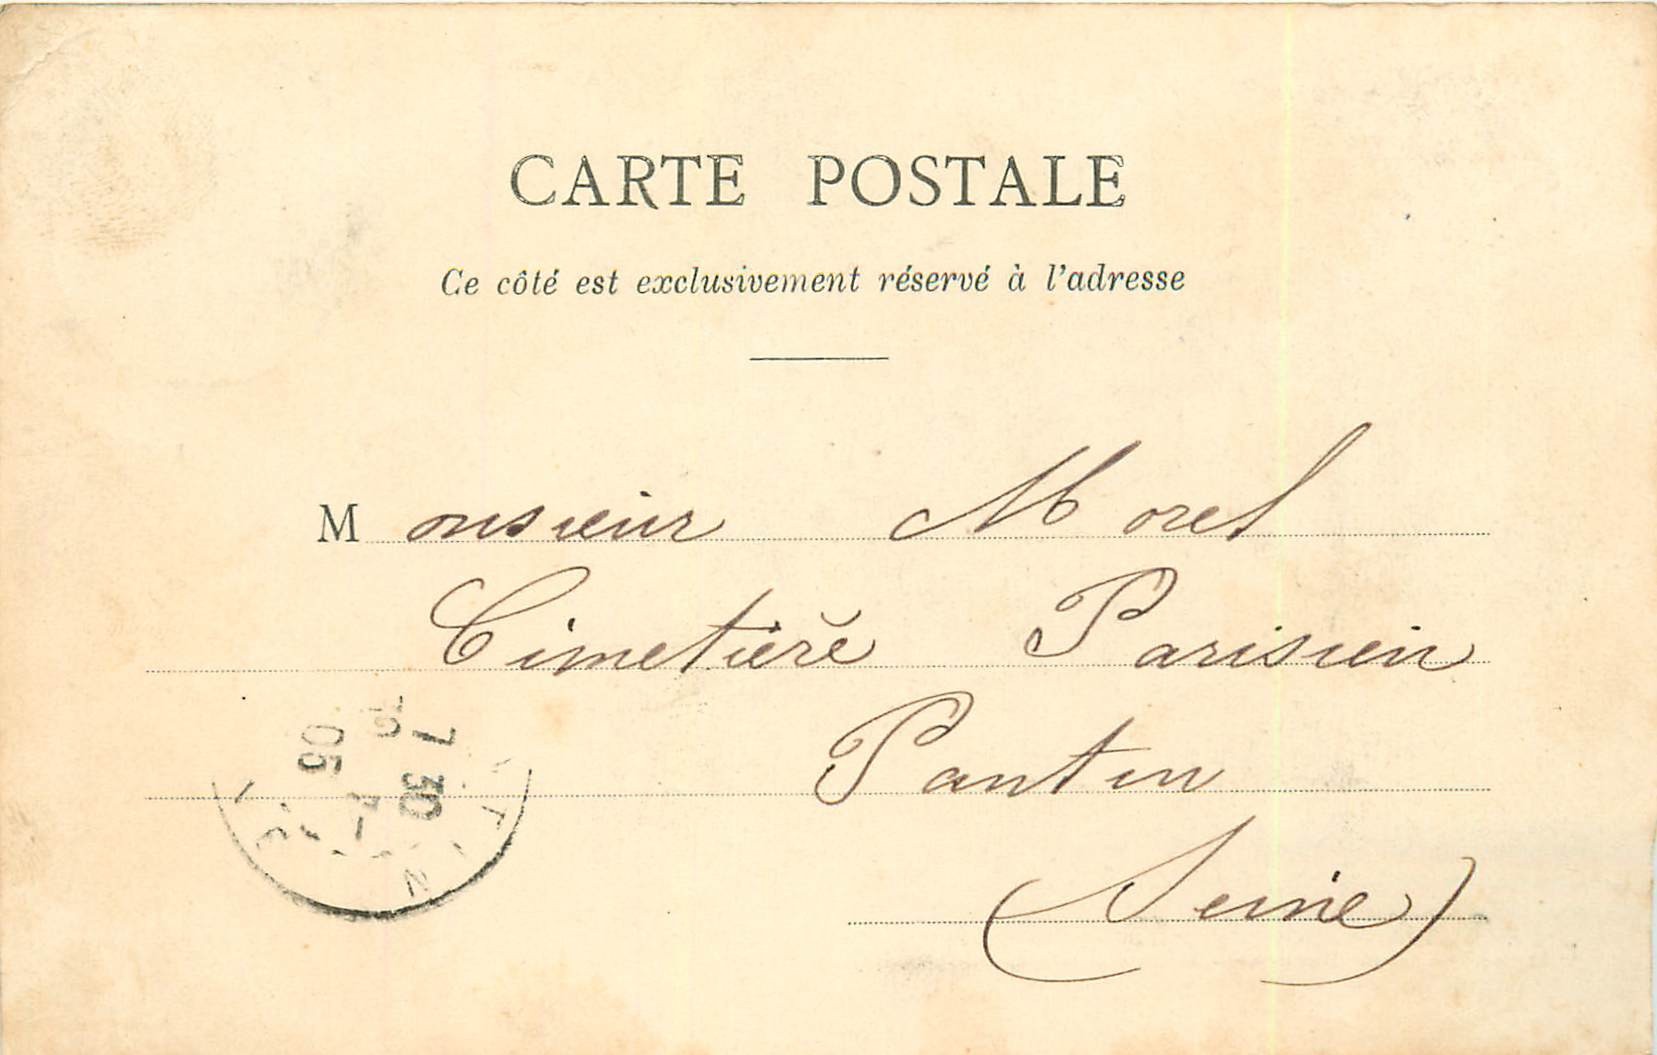 CARTE POSTALE
Ce côté est exclusivement réservé à l'adresse
Monsieur Morel
Cimetière Parisien
Pantin
(Seine)
7 30
05